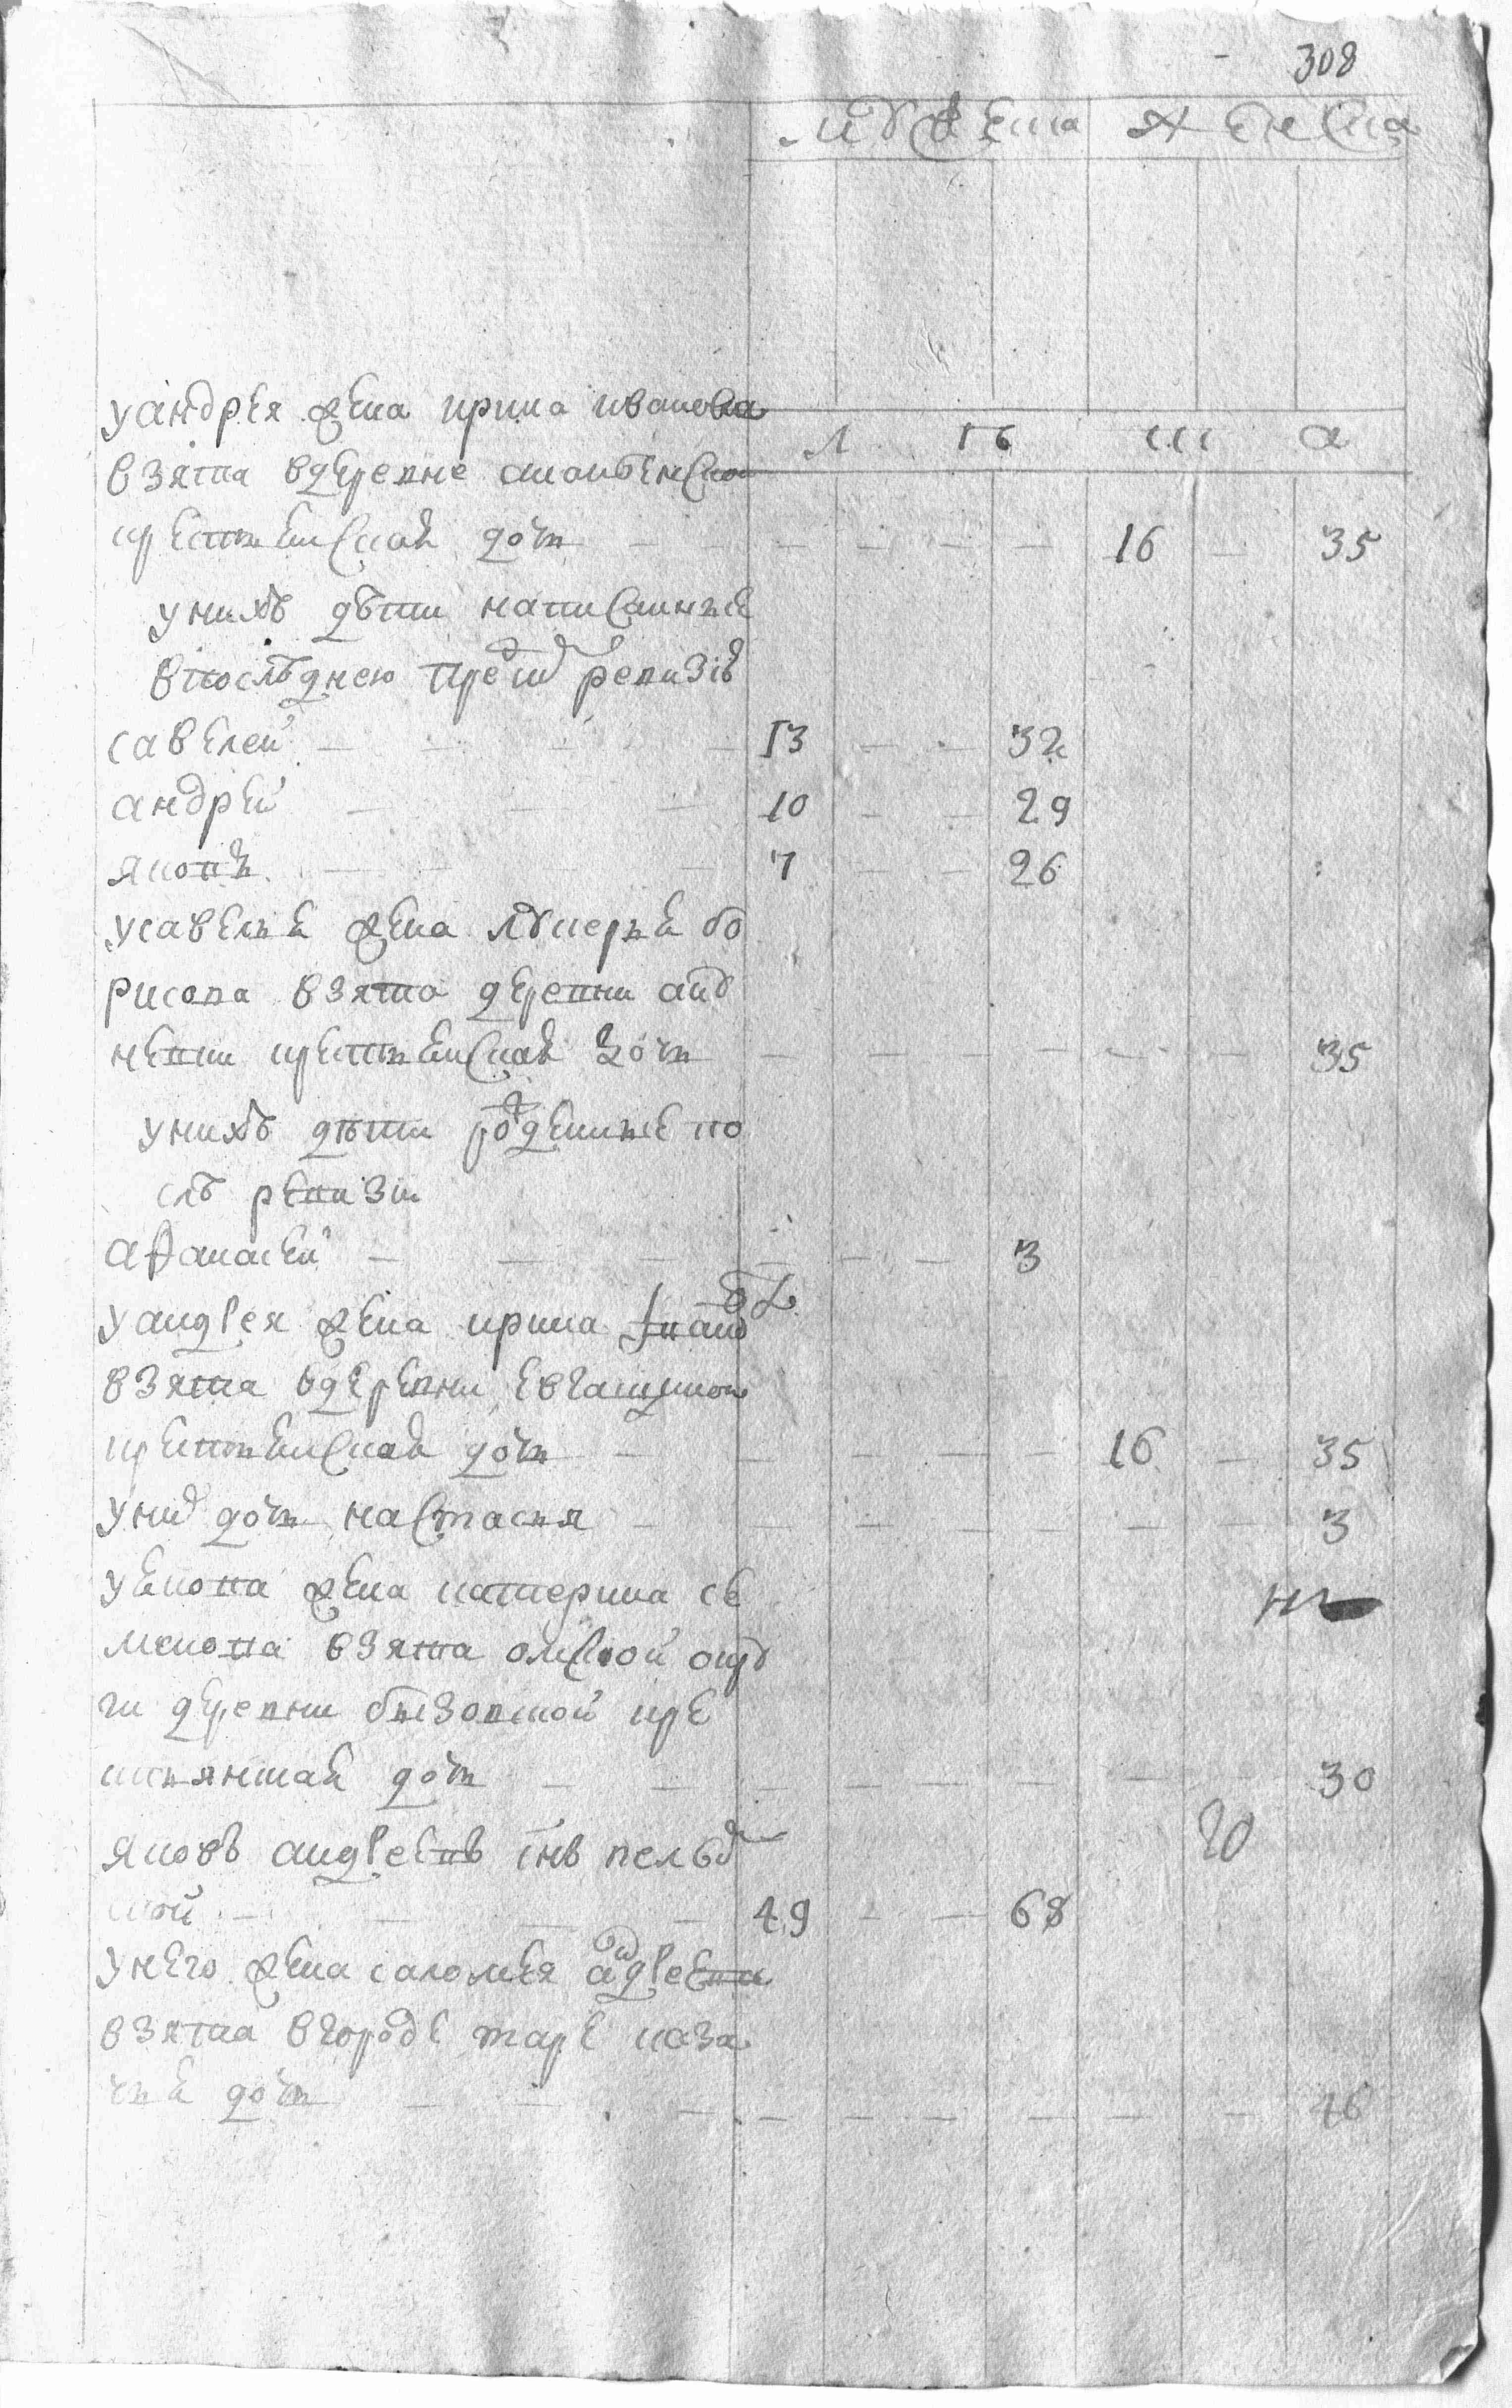 308
мужеска женска
у андрея жена ирина иванова
л ѣ т а
взята в деревне
крестьянская дочь 16 35
у нихъ дѣти написанные
в последнею пред ревизiю
савелей 13 32
андрей 10 29
яковъ 7 26
у савелья жена лукерья бо
рисова взята деревни
крестьянская дочь 35
у нихъ дѣти рожденные по
слѣ ревизiи
афанасей 3
у андрея жена ирина
взята в деревни евгащиной
крестьянская дочь 16 35
у них дочь настасья 3
у якова жена катерина се
менова взята омской окру
ги деревни бызовской кре
стьянская дочь 30
20
яковъ андреевъ снъ
ской 49 68
у него жена саломея андреева
взята в городе таре каза
чья дочь 46